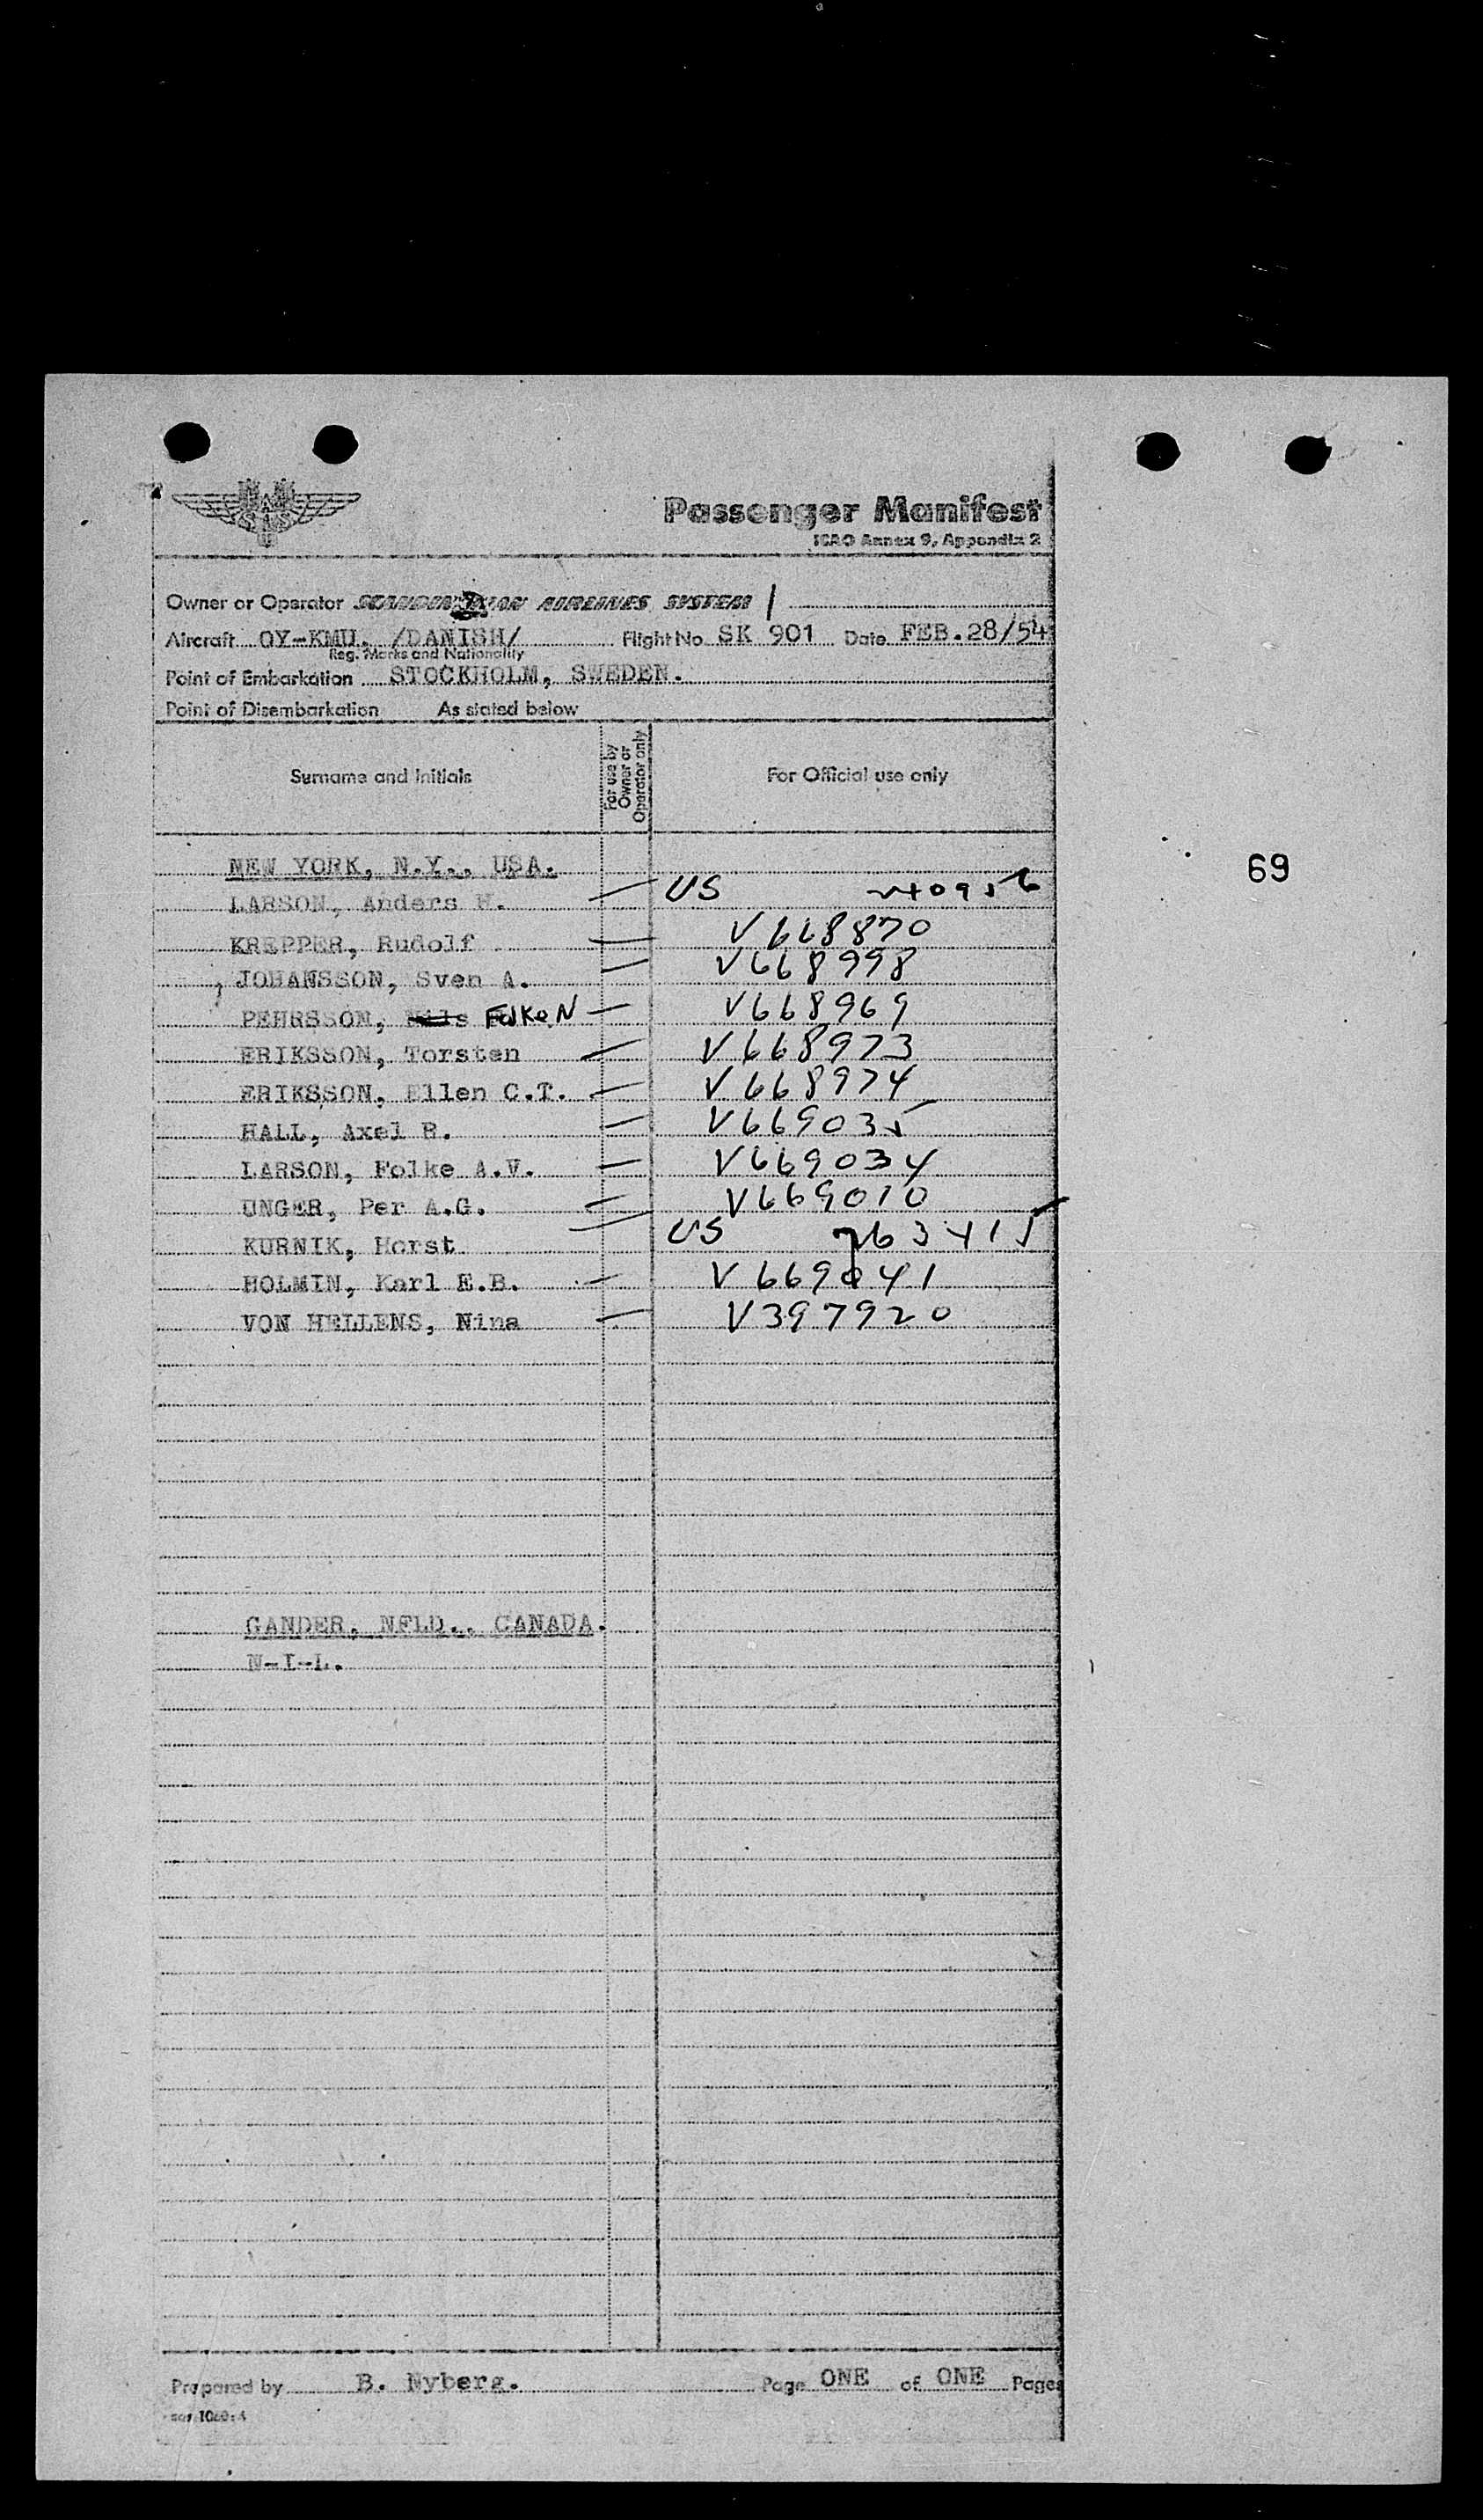 SAS
Passenger Manifest
ICAO Annex 9, Appendix 2
Owner or Operator SCANDINAVIAN AIRLINES SYSTEM /
Aircraft OY-KMU. /DANISH/ Flight No SK 901 Date FEB.28/54
Reg. Marks and Nationality
Point of Embarkation STOCKHOLM, SWEDEN.
Point of Disembarkation As stated below
Surname and Initials For use by Owner or Operator only For Official use only
NEW YORK, N.Y., USA.
69
LARSON, Anders F. — US
KREPPER, Rudolf — V668870
JOHANSSON, Sven A. — V668998
PEHRSSON, Folke N — V668969
ERIKSSON, Torsten — V668973
ERIKSSON, Ellen C.T. — V668974
HALL, Axel B. — V669035
LARSON, Folke A.V. — V669034
UNGER, Per A.G. — V669010
KURNIK, Horst — US
HOLMIN, Karl E.B. — V669041
VON HELLENS, Nina — V397920
GANDER, NFLD., CANADA.
N-I-L.
Prepared by B. Nyberg. Page ONE of ONE Pages